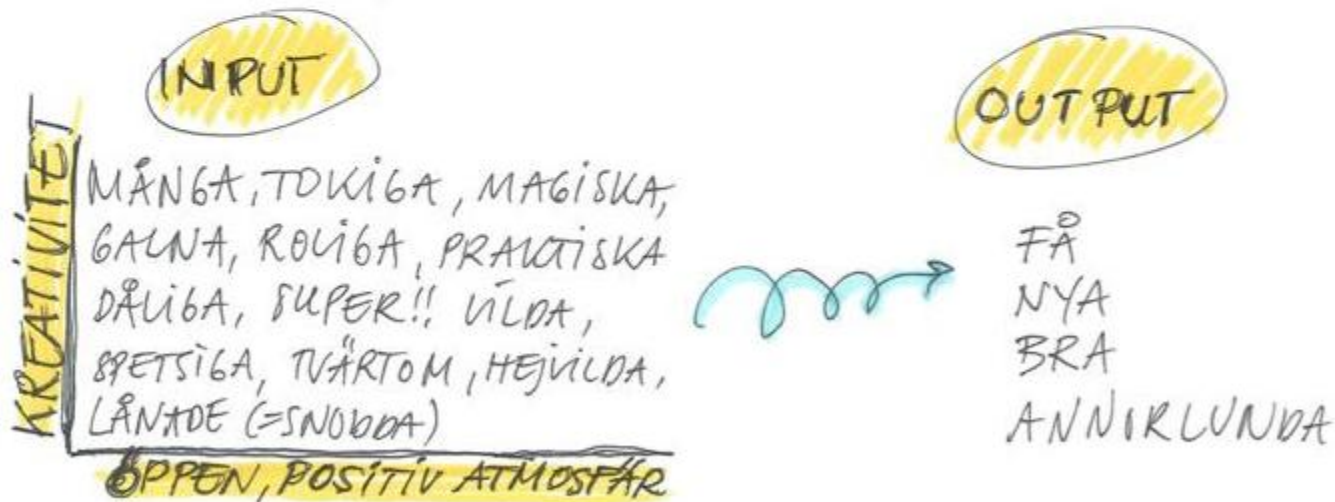 INPUT
OUTPUT
KREATIVITET
MÅNGA, TOKIGA, MAGISKA,
GALNA, ROLIGA, PRAKTISKA
DÅLIGA, SUPER!! VILDA,
SPETSIGA, TVÄRTOM, HEJVILDA,
LÅNADE (=SNODDA)
ÖPPEN, POSITIV ATMOSFÄR
FÅ
NYA
BRA
ANNORLUNDA